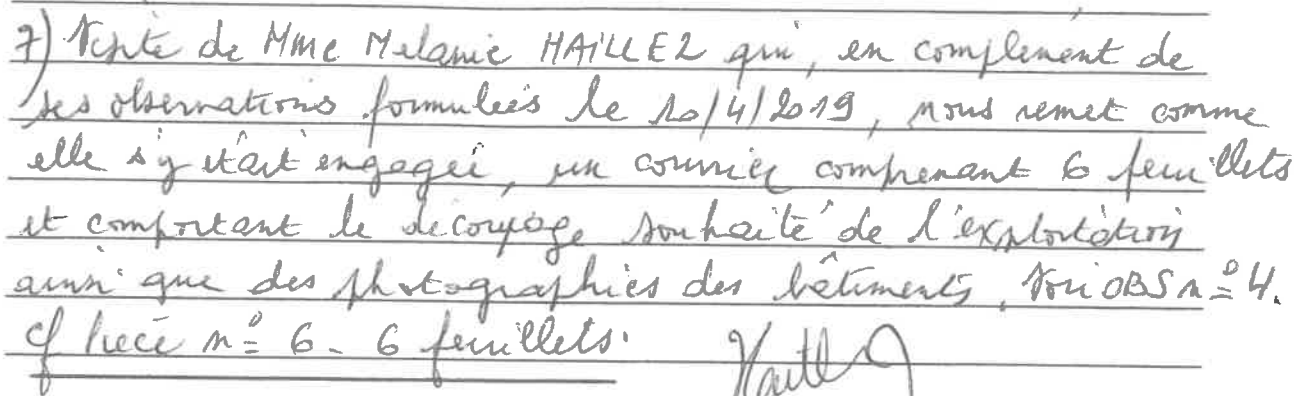 7) Visite de Mme Melanie HAILLEZ qui, en complement de
ses observations formulées le 10/4/2019, nous remet comme
elle s'y était engagée, un courrier comprenant 6 feuillets
et comportant le découpage souhaité de l'exploitation
ainsi que des photographies des bâtiments, Voir OBS n° 4.
cf pièce n° 6 - 6 feuillets.